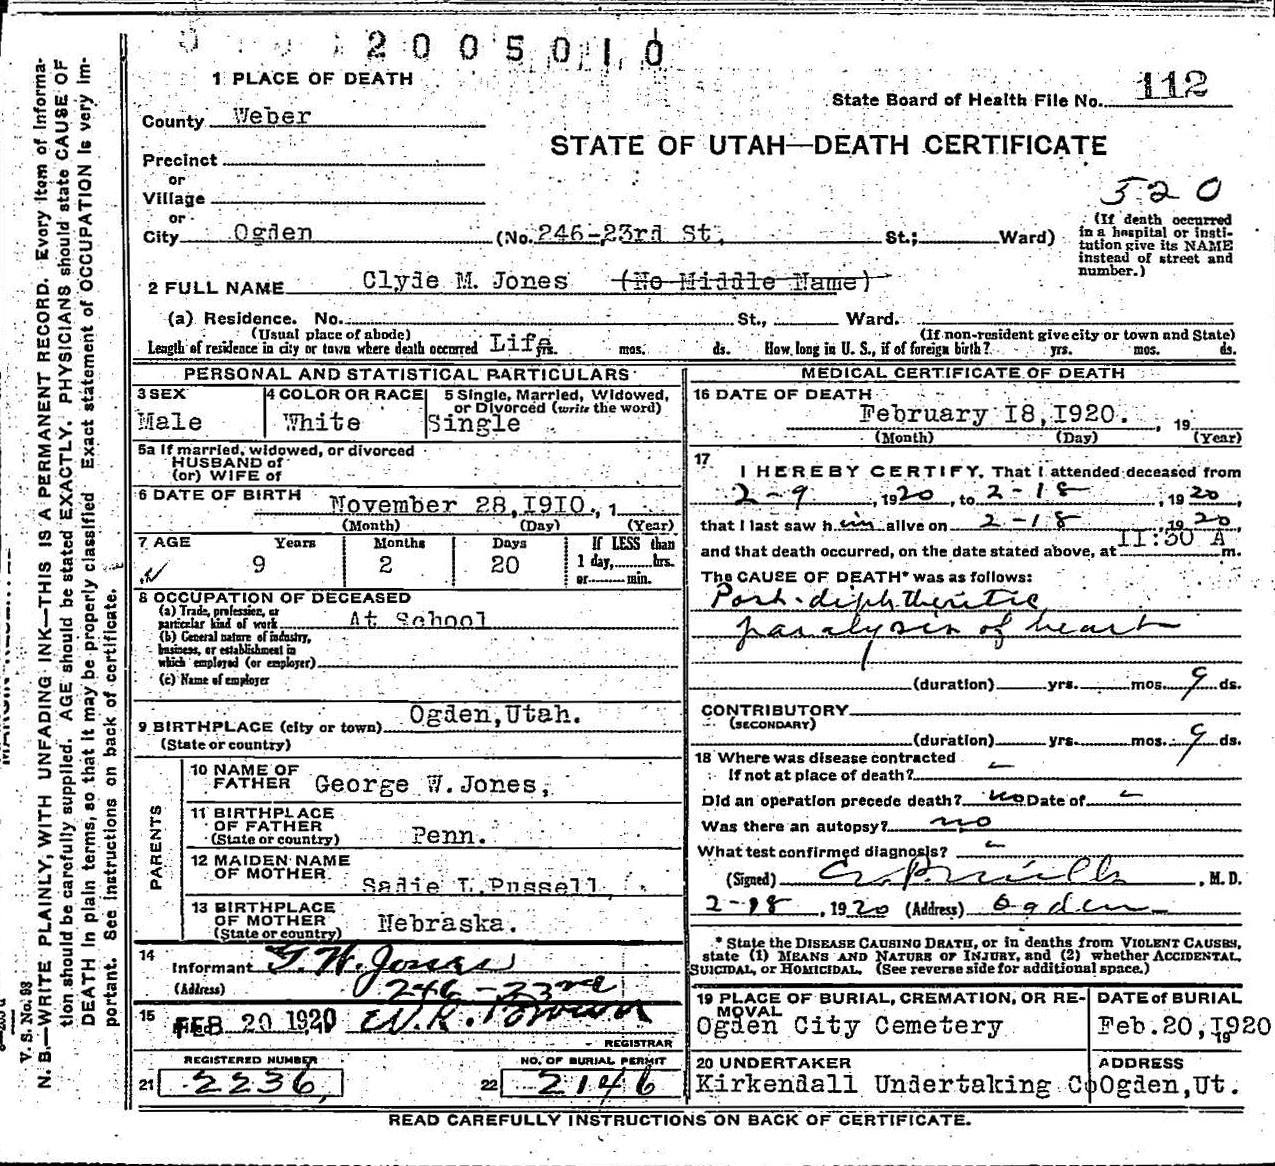 2005010
1 PLACE OF DEATH
State Board of Health File No. 112
County Weber
STATE OF UTAH—DEATH CERTIFICATE
Precinct
or
Village
or
City Ogden (No. 246-23rd St. St.; Ward)
520
(If death occurred in a hospital or insti-
tution give its NAME
instead of street and
number.)
2 FULL NAME Clyde M. Jones (No Middle Name)
(a) Residence. No. St., Ward.
(Usual place of abode) (If non-resident give city or town and State)
Length of residence in city or town where death occurred Life yrs. mos. ds. How long in U. S., if of foreign birth? yrs. mos. ds.
PERSONAL AND STATISTICAL PARTICULARS
3 SEX
Male
4 COLOR OR RACE
White
5 Single, Married, Widowed,
or Divorced (write the word)
Single
5a If married, widowed, or divorced
HUSBAND of
(or) WIFE of
6 DATE OF BIRTH November 28, 1910., 1
(Month) (Day) (Year)
7 AGE Years Months Days If LESS than
1 day, hrs.
or min.
9 2 20
8 OCCUPATION OF DECEASED
(a) Trade, profession, or
particular kind of work At School
(b) General nature of industry,
business, or establishment in
which employed (or employer)
(c) Name of employer
9 BIRTHPLACE (city or town) Ogden, Utah.
(State or country)
PARENTS
10 NAME OF
FATHER George W. Jones,
11 BIRTHPLACE
OF FATHER
(State or country) Penn.
12 MAIDEN NAME
OF MOTHER Sadie L. Russell
13 BIRTHPLACE
OF MOTHER
(State or country) Nebraska.
14
Informant G. W. Jones
(Address) 246 - 23rd
15 Filed FEB 20 1920 W. R. Brown
REGISTRAR
REGISTERED NUMBER
21 2236
NO. OF BURIAL PERMIT
22 2146
MEDICAL CERTIFICATE OF DEATH
16 DATE OF DEATH
February 18, 1920. , 19
(Month) (Day) (Year)
17
I HEREBY CERTIFY, That I attended deceased from
2-9, 1920, to 2-18, 1920,
that I last saw him alive on 2-18, 1920,
and that death occurred, on the date stated above, at 11:30 A m.
The CAUSE OF DEATH* was as follows:
Post-diphtheritic
paralysis of heart
(duration) yrs. mos. 9 ds.
CONTRIBUTORY
(SECONDARY)
(duration) yrs. mos. 9 ds.
18 Where was disease contracted
If not at place of death? -
Did an operation precede death? no Date of -
Was there an autopsy? no
What test confirmed diagnosis? -
(Signed) , M. D.
2-18, 1920 (Address) Ogden
* State the DISEASE CAUSING DEATH, or in deaths from VIOLENT CAUSES,
state (1) MEANS AND NATURE OF INJURY, and (2) whether ACCIDENTAL,
SUICIDAL, or HOMICIDAL. (See reverse side for additional space.)
19 PLACE OF BURIAL, CREMATION, OR RE-
MOVAL
Ogden City Cemetery
DATE of BURIAL
Feb. 20, 1920
19
20 UNDERTAKER
Kirkendall Undertaking Co
ADDRESS
Ogden, Ut.
READ CAREFULLY INSTRUCTIONS ON BACK OF CERTIFICATE.
V. S. No. 63
N. B.—WRITE PLAINLY, WITH UNFADING INK—THIS IS A PERMANENT RECORD. Every item of informa-
tion should be carefully supplied. AGE should be stated EXACTLY. PHYSICIANS should state CAUSE OF
DEATH in plain terms, so that it may be properly classified. Exact statement of OCCUPATION is very im-
portant. See instructions on back of certificate.